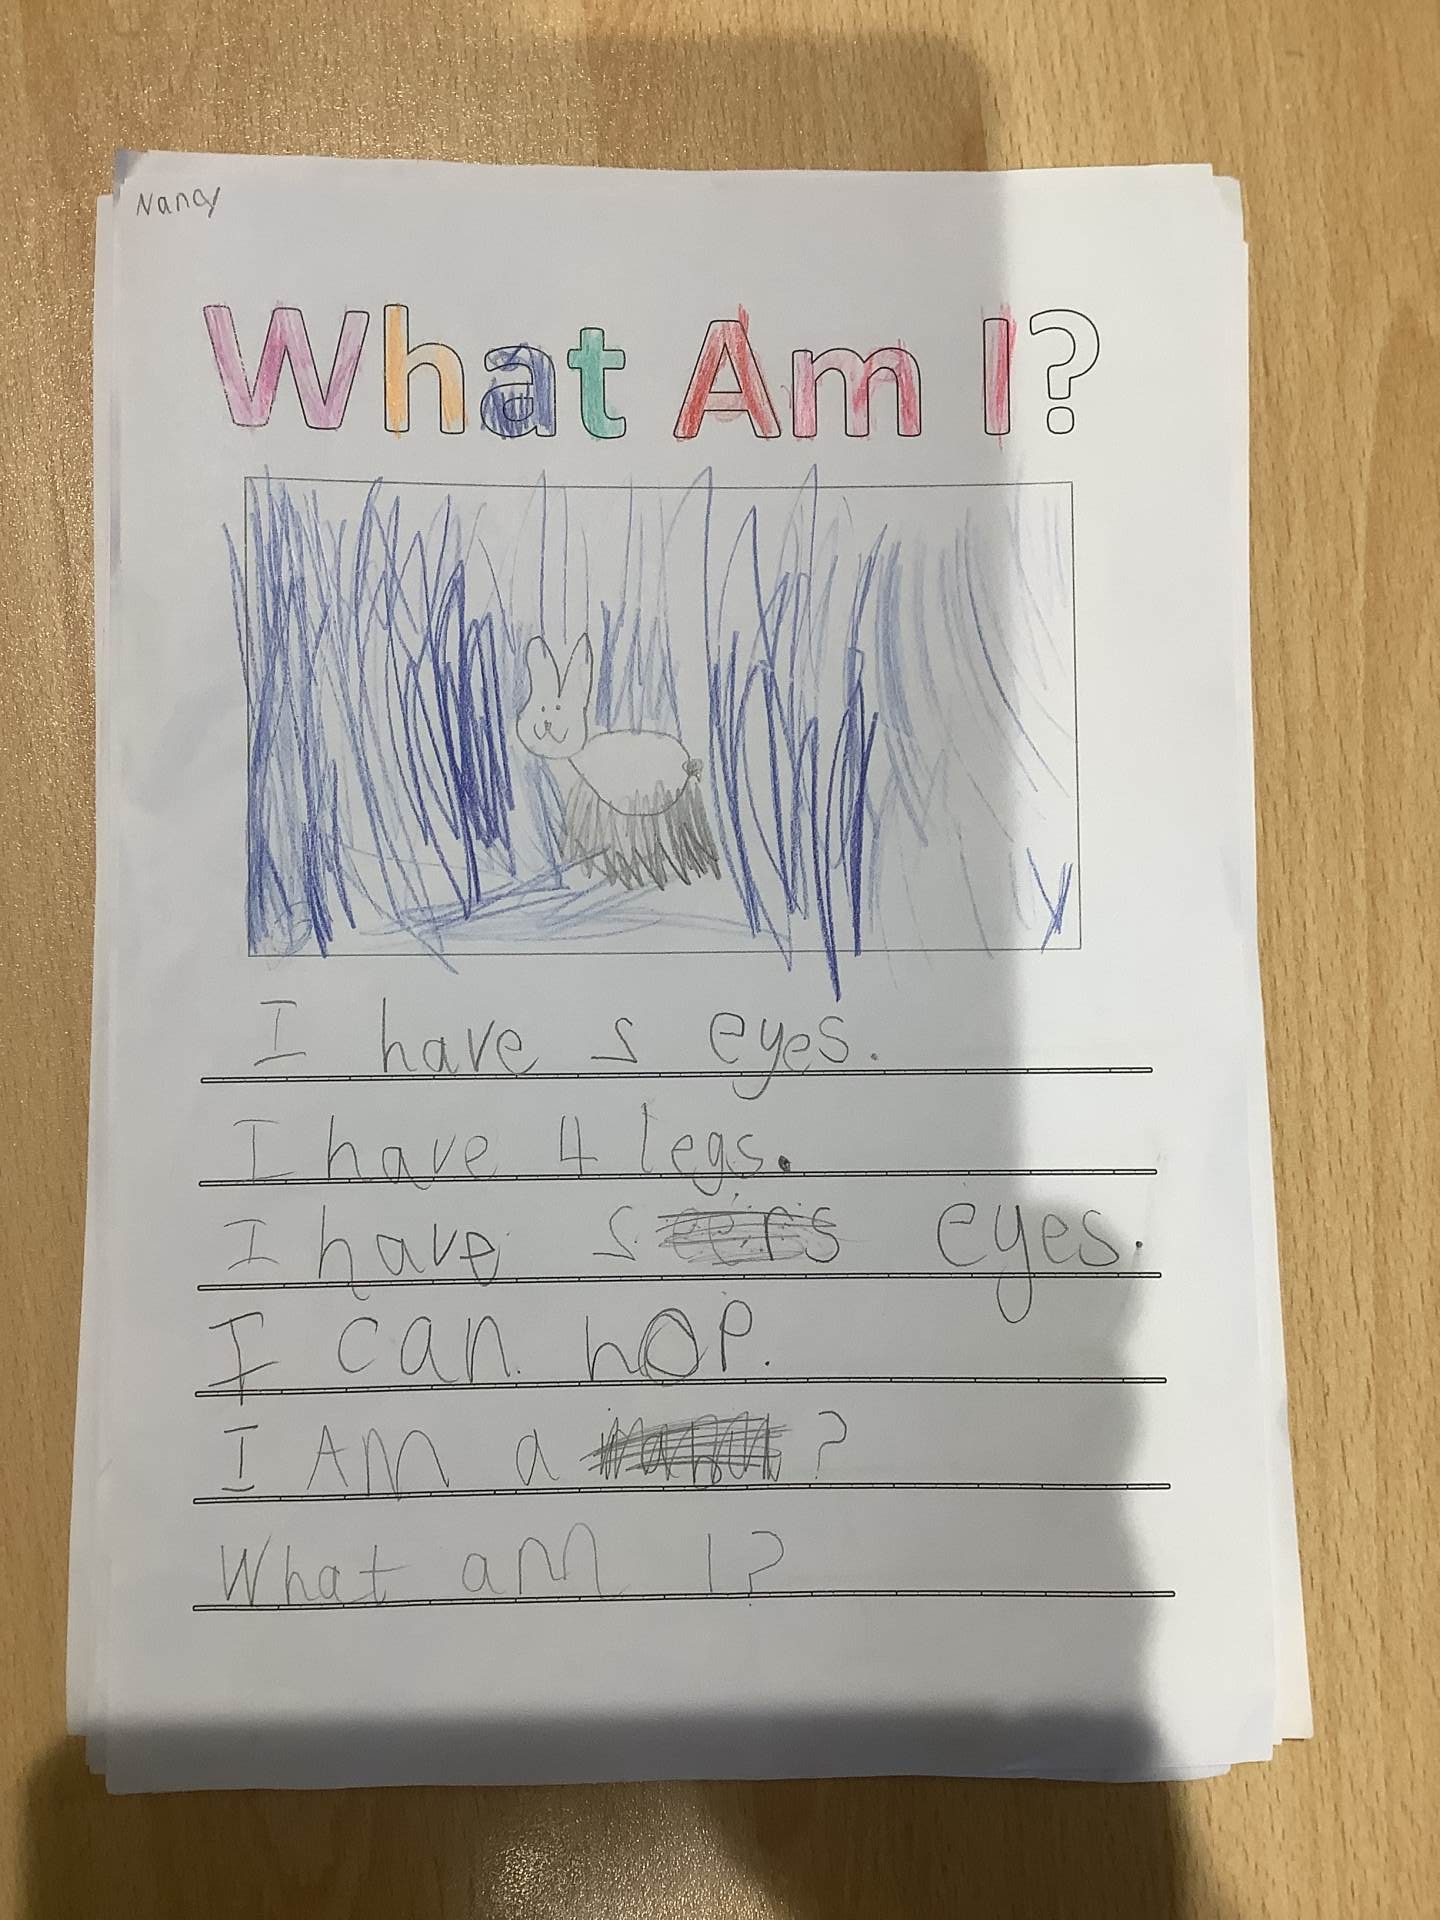 Nancy
What Am I?
I have 2 eyes.
I have 4 legs.
I have 2 eyes.
I can hop.
I AM a ?
What am I?